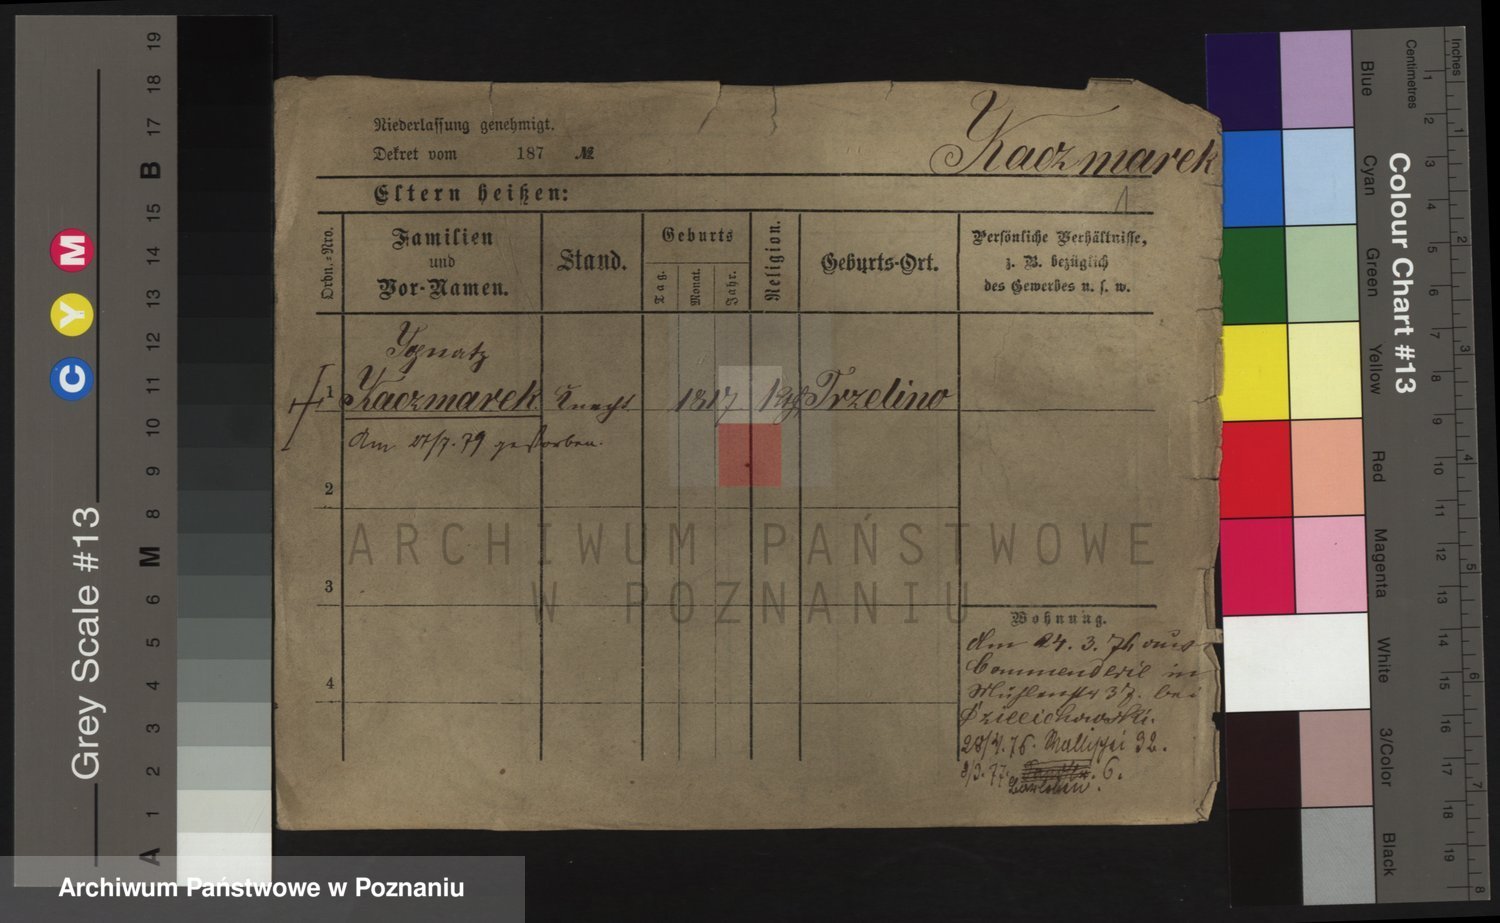 Niederlassung genehmigt.
Dekret vom 187 №
Kaczmarek
1
Eltern heißen:
Ordn.-Nro.
Familien
und
Vor-Namen.
Stand.
Geburts
Tag.
Monat.
Jahr.
Religion.
Geburts-Ort.
Persönliche Verhältnisse,
z. B. bezüglich
des Gewerbes u. s. w.
Ignatz
1 Kaczmarek Knecht 1817 Kth Trzelino
Am 27/7. 79 gestorben.
2
3
4
Wohnung.
Am 24. 3. 76 aus
Commenderie in
Mühlenstr 37. bei
28/4. 76. Wallischei 92.
8/3. 77. 6.
ARCHIWUM PAŃSTWOWE
W POZNANIU
Archiwum Państwowe w Poznaniu
Grey Scale #13
C Y M
A 1 2 3 4 5 6 M 8 9 10 11 12 13 14 15 B 17 18 19
Colour Chart #13
Blue
Cyan
Green
Yellow
Red
Magenta
White
3/Color
Black
Centimetres
1 2 3 4 5 6 7 8 9 10 11 12 13 14 15 16 17 18 19
Inches
1 2 3 4 5 6 7 8